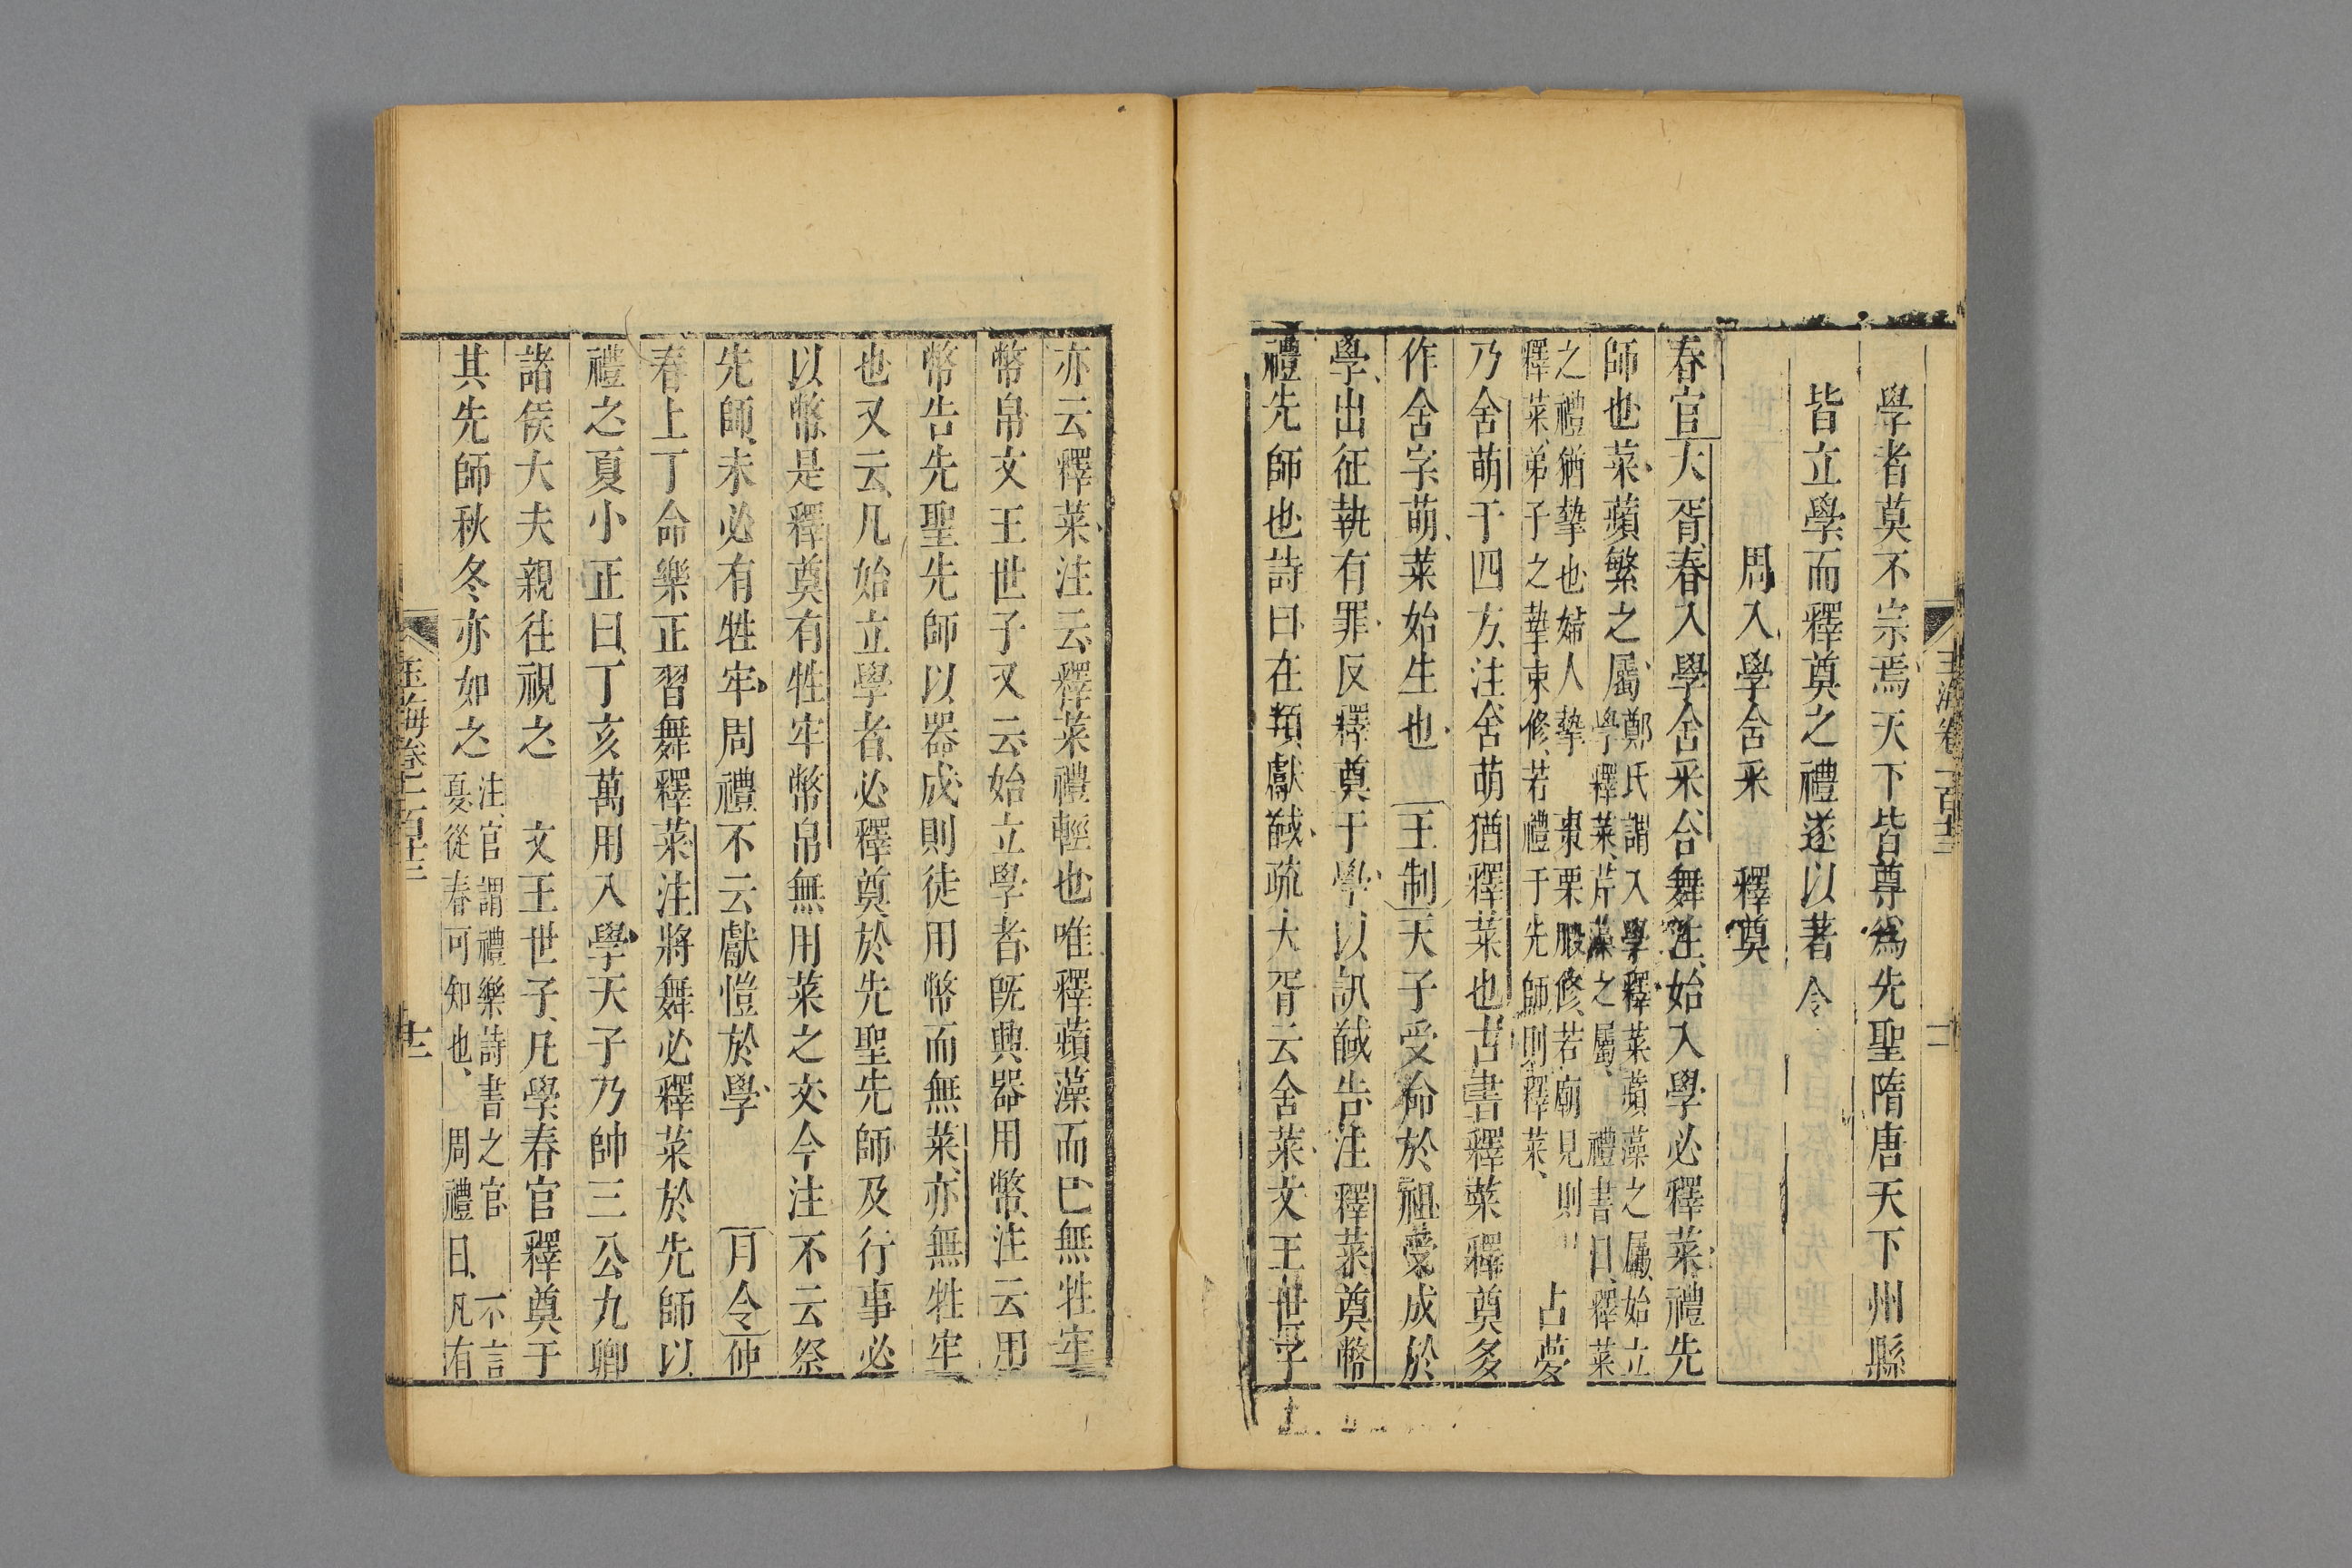 學者莫不宗焉天下皆尊爲先聖隋唐天下州縣
皆立學而釋奠之禮遂以著令
周入學舍采 釋奠
春官大胥春入學舍采合舞注始入學必釋菜禮先
師也菜蘋蘩之屬鄭氏謂入學釋菜蘋藻之屬始立
學釋菜芹藻之屬禮書曰釋菜
之禮猶摯也婦人摯棗栗腶修若廟見則
釋菜弟子之摯束修若禮于先師則釋菜 占夢
乃舍萌于四方注舍萌猶釋菜也古書釋菜釋奠多
作舍字萌菜始生也 王制天子受命於祖受成於
學出征執有罪反釋奠于學以訊馘告注釋菜奠幣
禮先師也詩曰在頖獻馘疏大胥云舍菜文王世子
亦云釋菜注云釋菜禮輕也唯釋蘋藻而已無牲牢
幣帛文王世子又云始立學者既興器用幣注云用
幣告先聖先師以器成則徒用幣而無菜亦無牲牢
也又云凡始立學者必釋奠於先聖先師及行事必
以幣是釋奠有牲牢幣帛無用菜之文今注不云祭
先師未必有牲牢周禮不云獻愷於學 月令仲
春上丁命樂正習舞釋菜注將舞必釋菜於先師以
禮之夏小正曰丁亥萬用入學天子乃帥三公九卿
諸侯大夫親往視之 文王世子凡學春官釋奠于
其先師秋冬亦如之注官謂禮樂詩書之官不言
夏從春可知也周禮曰凡有
玉海卷一百十三
十二